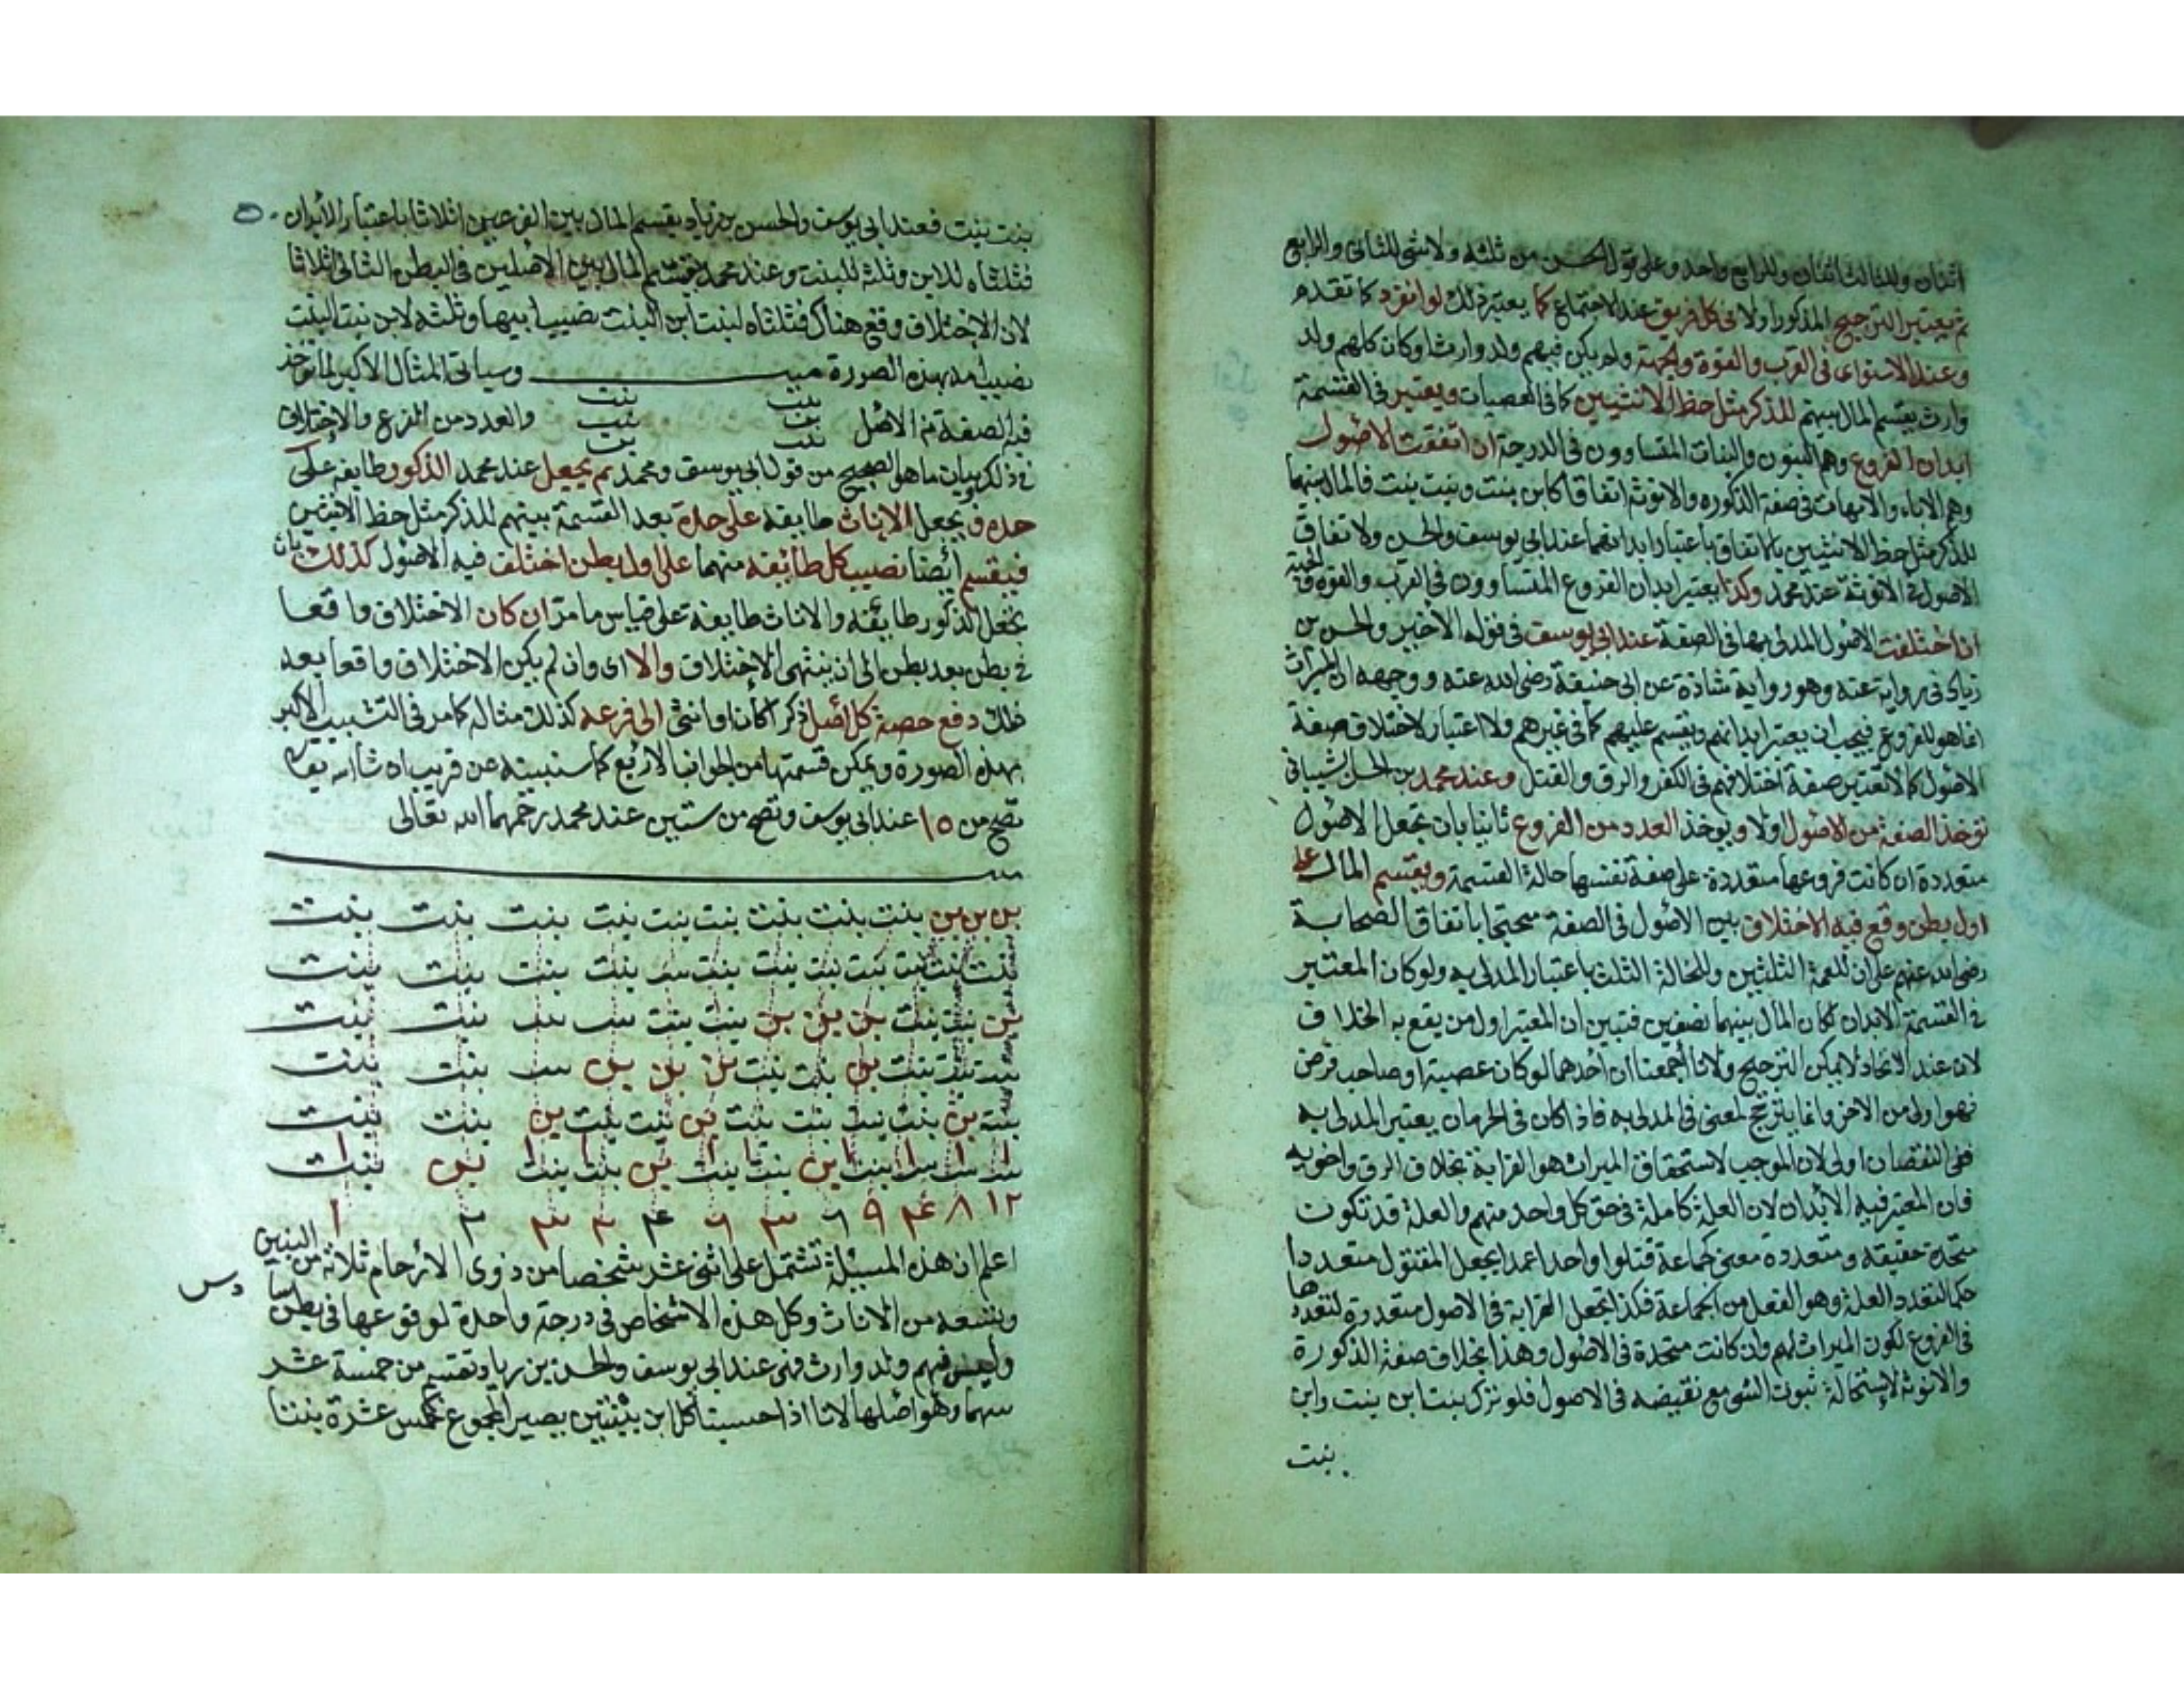 اثنان وللثالث اثنان وللرابع واحد وعلى قول الحسن من ثلثه ولا شى للثانى والرابع
ثم يعتبر الترجيح المذكور اولا فى كل فريق عند الاجتماع كما يعتبر ذلك لو انفرد كما تقدم
وعند الاستواى فى القرب والقوة والجهة ولم يكن فيهم ولد وارث او كان كلهم ولد
وارث يقسم المال بينهم للذكر مثل حظ الانثيين كما فى العصبات ويعتبر فى القسمة
ابدان الفروع وهم البنون والبنات المتساوون فى الدرجة ان اتفقت الاصول
وهم الاباء والامهات فى صفة الذكوره والانوثة اتفاقا كابن بنت وبنت بنت فالمال بينهما
للذكر مثل حظ الانثيين بالاتفاق باعتبار ابدانهما عند ابى يوسف والحسن ولاتفاق
الاصول فى الانوثة عند محمد وكذا يعتبر ابدان الفروع المتساوون فى القرب والقوة والجهة
ان اختلفت الاصول المدلى بها فى الصفة عند ابى يوسف فى قوله الاخير والحسن بن
زياد فى رواية عنه وهو رواية شاذة عن ابى حنيفة رضى الله عنه ووجهه ان الميراث
انما هو للفروع فيجب ان يعتبر ابدانهم ويقسم عليهم كما فى غيرهم ولا اعتبار لاختلاف صفة
الاصول كما لا تعتبر صفة اختلافهم فى الكفر والرق والقتل وعند محمد بن الحسن الشيبانى
تؤخذ الصفة من الاصول اولا ويؤخذ العدد من الفروع ثانيا بان تجعل الاصول
متعددة ان كانت فروعها متعددة على صفة نفسها حالة القسمة ويقسم المال على
اول بطن وقع فيه الاختلاف بين الاصول فى الصفة محتجا باتفاق الصحابة
رضى الله عنهم على ان للعمة الثلثين وللخالة الثلث باعتبار المدلى به ولو كان المعتبر
فى القسمة الابدان لكان المال بينهما نصفين فتبين ان المعتبر اول من يقع به الخلاف
لان عند الاتحاد لا يمكن الترجيح ولانا اجمعنا ان احدهما لو كان عصبة او صاحب فرض
فهو اولى من الاخر وانما يترجح لمعنى فى المدلى به فاذا كان فى الحرمان يعتبر المدلى به
ففى النقصان اولى لان الموجب لاستحقاق الميراث هو القرابة بخلاف الرق واخويه
فان المعتبر فيه الابدان لان العلة كاملة فى حق كل واحد منهم والعلة قد تكون
متحدة حقيقة ومتعددة معنى كجماعة قتلوا واحدا عمدا يجعل المقتول متعددا
حكما لتعدد العلة وهو الفعل من الجماعة فكذا تجعل القرابة فى الاصول متعددة لتعددها
فى الفروع لكون الميراث لهم وان كانت متحدة فى الاصول وهذا بخلاف صفة الذكورة
والانوثة لاستحالة ثبوت الشى مع نقيضه فى الاصول فلو ترك بنت ابن بنت وابن
بنت
بنت بنت فعند ابى يوسف والحسن بن زياد يقسم المال بين الفرعين اثلاثا باعتبار الأبدان
فثلثاه للابن وثلثه للبنت وعند محمد يقسم المال بين الاصلين فى البطن الثانى اثلاثا
لان الاختلاف وقع هناك فثلثاه لبنت ابن البنت نصيب ابيها وثلثه لابن بنت البنت
نصيب امه بهذه الصورة ميت وسياتى المثال الاكبر لما توخذ
بنت بنت
فيه الصفة من الاصل والعدد من الفرع والاختلاف
فى ذلك وبيان ما هو الصحيح من قول ابى يوسف ومحمد ثم يجعل عند محمد الذكور طايفه على
حده ويجعل الاناث طايفة على حدة بعد القسمة بينهم للذكر مثل حظ الانثيين
فيقسم أيضا نصيب كل طائفه منهما على اول بطن اختلف فيه الاصول كذلك بان
تجعل الذكور طائفه والاناث طايفة على قياس ما مر ان كان الاختلاف واقعا
فى بطن بعد بطن الى ان ينتهى الاختلاف والا اى وان لم يكن الاختلاف واقعا بعد
ذلك دفع حصة كل اصل ذكر ا كان او انثى الى فرعه كذلك مثاله كما مر فى التشبيب الاكبر
بهذه الصورة ويمكن قسمتها من الجوانب الاربع كما سنبينه عن قريب ان شا الله تعالى
تصح من ١٥ عند ابى يوسف وتصح من ستين عند محمد رحمهما الله تعالى
بن بن بن بنت بنت بنت بنت بنت بنت بنت بنت بنت
بنت بنت بنت بنت بنت بنت بنت بنت بنت بنت بنت بنت
بن بنت بنت بن بن بن بنت بنت بنت بنت بنت بنت
بنت بنت بنت بن بنت بنت بن بن بن بنت بنت بنت
بنت بن بنت بنت بنت بنت بن بنت بنت بن بنت بنت
بنت بنت بنت بنت بن بنت بنت بن بنت بنت بن بنت
١٢ ٨ ٤ ٩ ٦ ٣ ٦ ٤ ٢ ٣ ٢ ١
اعلم ان هذه المسئلة تشتمل على اثنى عشر شخصا من ذوى الارحام ثلاثه من البنين
وتسعه من الاناث وكل هذه الاشخاص فى درجة واحدة لوقوعها فى بطن سادس
وليس فيهم ولد وارث فهى عند ابى يوسف والحسن بن زياد تقسم من خمسة عشر
سهما وهو اصلها لانا اذا حسبنا كل ابن ببنتين يصير المجموع كخمس عشرة بنتا